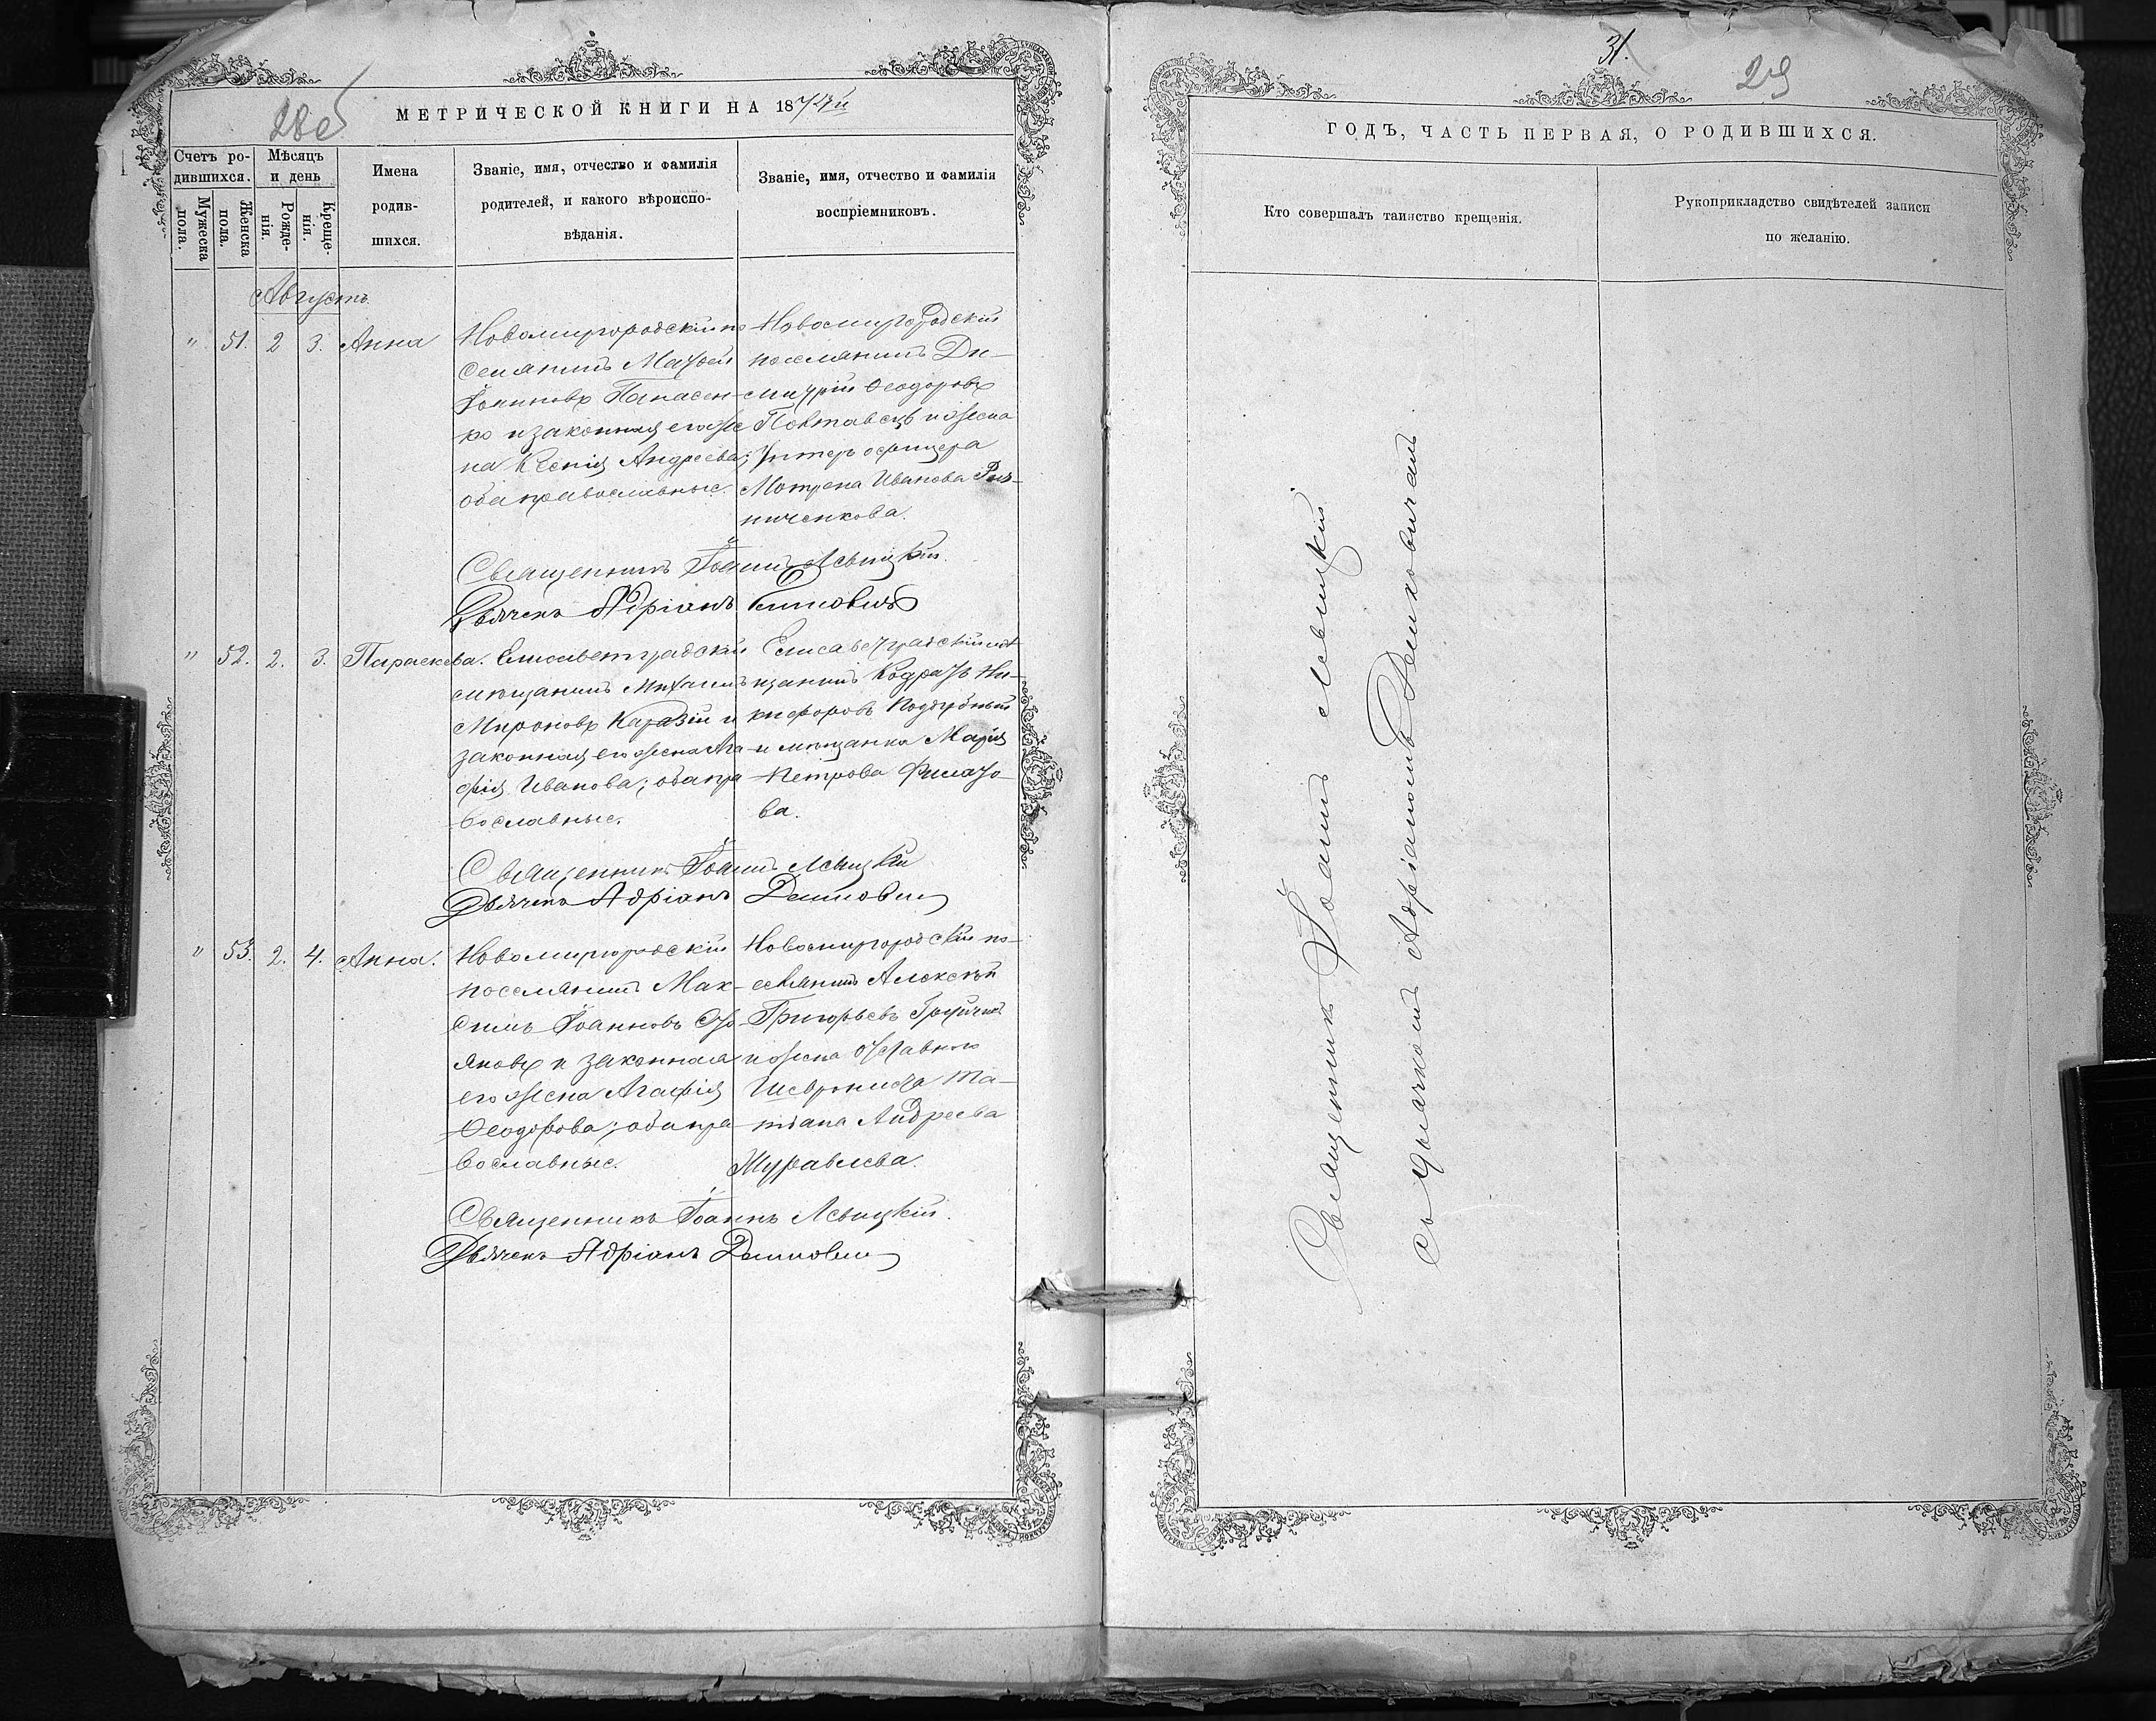 28 об
МЕТРИЧЕСКОЙ КНИГИ НА 1874й
Счетъ ро-
дившихся.
Мужеска
пола.
Женска
пола.
Мѣсяцъ
и день
Рожде-
нія.
Креще-
нія.
Имена
родив-
шихся.
Званіе, имя, отчество и фамилія
родителей, и какого вѣроиспо-
вѣданія.
Званіе, имя, отчество и фамилія
воспріемниковъ.
Августъ.
" 51. 2 3. Анна
Новомиргородскій по
селянинъ Матѳей
Іоанновъ Панасен-
ко и законная его же
на Ксенія Андреева;
оба православные.
Новомиргородскій
поселянинъ Ди-
митрій Ѳеодоровъ
Полтавецъ и жена
Унтеръ офицера
Мотрона Иванова Рез-
ниченкова.
Священникъ Іоаннъ Левицкій.
Дьячекъ Адріанъ
" 52. 2. 3. Параскева.
Елисаветградскій
мѣщанинъ Михаилъ
Мироновъ Каразій и
законная его жена Ага-
фія Иванова; оба пра
вославные.
Елисаветградскій мѣ
щанинъ Кодратъ Ни-
кифоровъ Поддубный
и мѣщанка Марія
Петрова Филато-
ва.
Священникъ Іоаннъ Левицкій
Дьячекъ Адріанъ
" 53. 2. 4. Анна.
Новомиргородскій
поселянинъ Мак-
симъ Іоанновъ Сто
яновъ и законная
его жена Агафія
Ѳеодорова; оба пра
вославные.
Новомиргородскій по-
селянинъ Алексѣй
Григорьевъ
и жена отставнаго
Та-
тіана Андреева
Журавлева.
Священникъ Іоаннъ Левицкій.
Дьячекъ Адріанъ
31.
29
ГОДЪ, ЧАСТЬ ПЕРВАЯ, О РОДИВШИХСЯ.
Кто совершалъ таинство крещенія.
Рукоприкладство свидѣтелей записи
по желанію.
Священникъ Іоаннъ Левицкій
съ дьячкомъ Адріаномъ